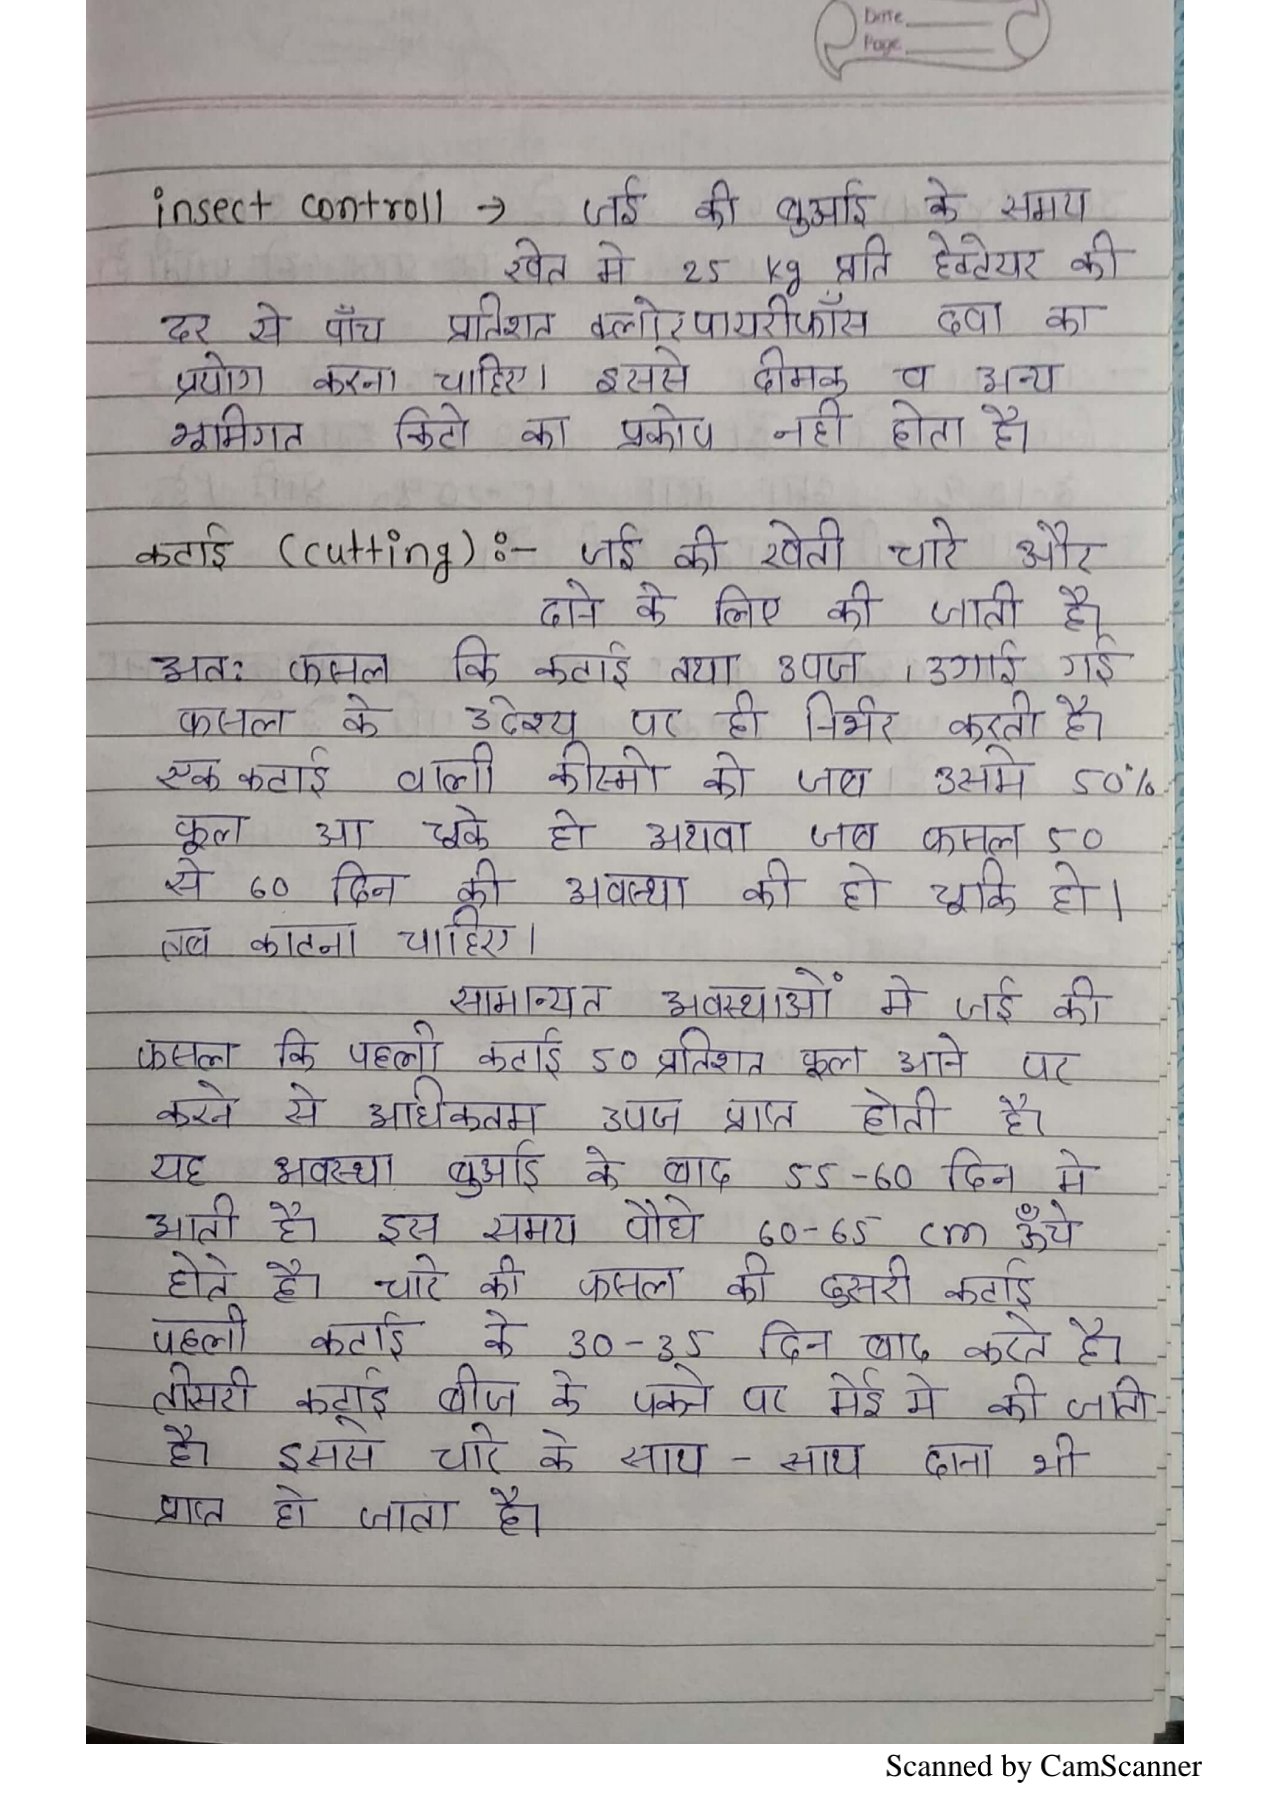 Date
Page
insect controll → जई की बुआई के समय
खेत मे 25 kg प्रति हेक्टेयर की
दर से पाँच प्रतिशत क्लोरपायरीफॉस दवा का
प्रयोग करना चाहिए। इससे दीमक व अन्य
भूमिगत किटो का प्रकोप नही होता है।
कटाई (cutting) :- जई की खेती चारे और
दाने के लिए की जाती है।
अतः फसल कि कटाई तथा उपज, उगाई गई
फसल के उदेश्य पर ही निर्भर करती है।
एक कटाई वाली कीस्मो को जब उसमे 50%
फूल आ चूके हो अथवा जब फसल 50
से 60 दिन की अवस्था की हो चूकि हो।
तब काटना चाहिए।
सामान्यत अवस्थाओं मे जई की
फसल कि पहली कटाई 50 प्रतिशत फूल आने पर
करने से अधिकतम उपज प्राप्त होती है।
यह अवस्था बुआई के बाद 55-60 दिन मे
आती है। इस समय पौधे 60-65 cm ऊँचे
होते है। चारे की फसल की दुसरी कटाई
पहली कटाई के 30-35 दिन बाद करते है।
तीसरी कटाई बीज के पकने पर मेई मे की जाती
है। इससे चारे के साथ - साथ दाना भी
प्राप्त हो जाता है।
Scanned by CamScanner